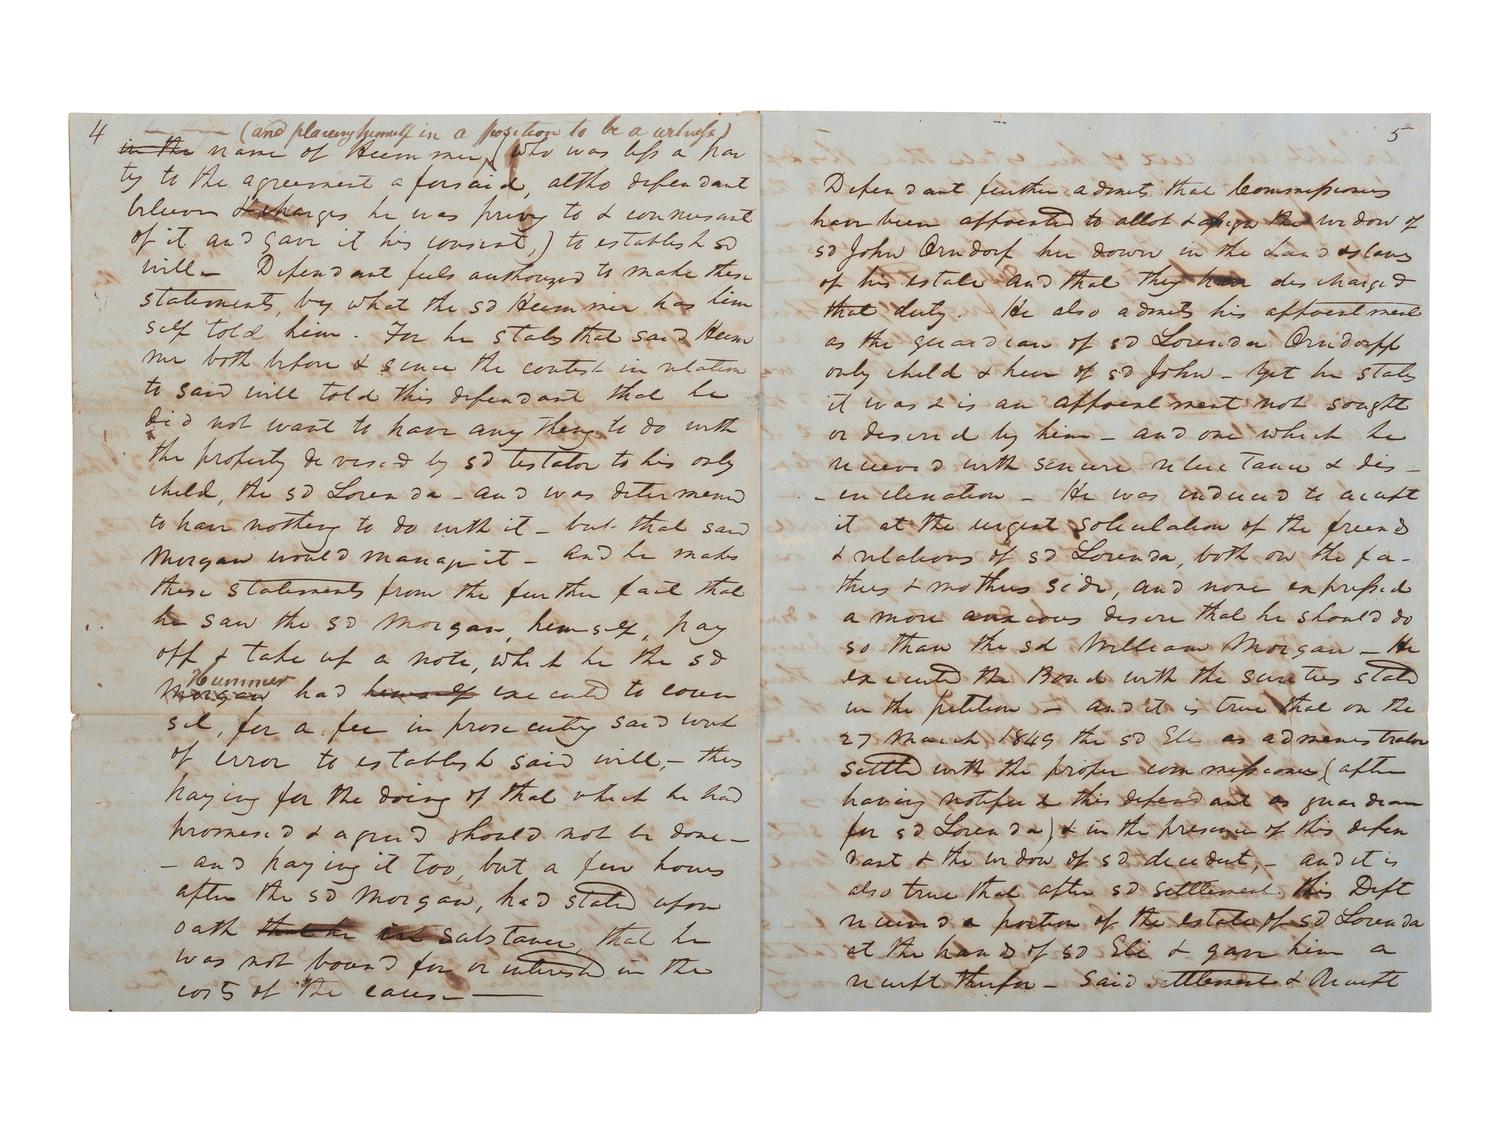 4
(and placing himself in a position to be a witness)
in the name of Hummer, (who was less a par
ty to the agreement aforesaid, altho defendant
believes & charges he was privy to & connusant
of it and gave it his consent,) to establish sd
will – Defendant feels authorized to make these
statements, by what the sd Hummer has him
self told him. For he states that said Hum
mer both before & since the contest in relation
to said will told this defendant that he
did not want to have any thing to do with
the property devised by sd testator to his only
child, the sd Lorenda – and was determined
to have nothing to do with it – but that said
Morgan would manage it – and he makes
these statements from the further fact that
he saw the sd Morgan, himself, pay
off & take up a note, which he the sd
Hummer
Morgan had himself executed to coun
sel, for a fee in prosecuting said writ
of error to establish said will, – thus
paying for the doing of that which he had
promised & agreed should not be done –
– and paying it too, but a few hours
after the sd Morgan, had stated upon
oath that he in substance, that he
was not bound for or interested in the
costs of the cause –
5
Defendant further admits that Commissioners
have been appointed to allot & assign the widow of
sd John Orndorf her dower in the Land & slaves
of his estate and that they have discharged
that duty. He also admits his appointment
as the guardian of sd Lorenda Orndorff
only child & heir of sd John – Yet he states
it was & is an appointment not sought
or desired by him – and one which he
received with sincere reluctance & dis –
– inclination – He was induced to accept
it at the urgent solicitation of the friends
& relations of sd Lorenda, both on the fa –
thers & mothers side, and none expressed
a more anxious desire that he should do
so than the sd William Morgan – He
executed the Bond with the sureties stated
in the petition – and it is true that on the
27 March 1849 the sd Eli as administrator
settled with the proper commissioner (after
having notified this defendant as guardian
for sd Lorenda) & in the presence of this defen
dant & the widow of sd decedent, – and it is
also true that after sd settlement this Deft
received a portion of the estate of sd Lorenda
at the hand of sd Eli & gave him a
receipt therefor – Said settlement & Receipt